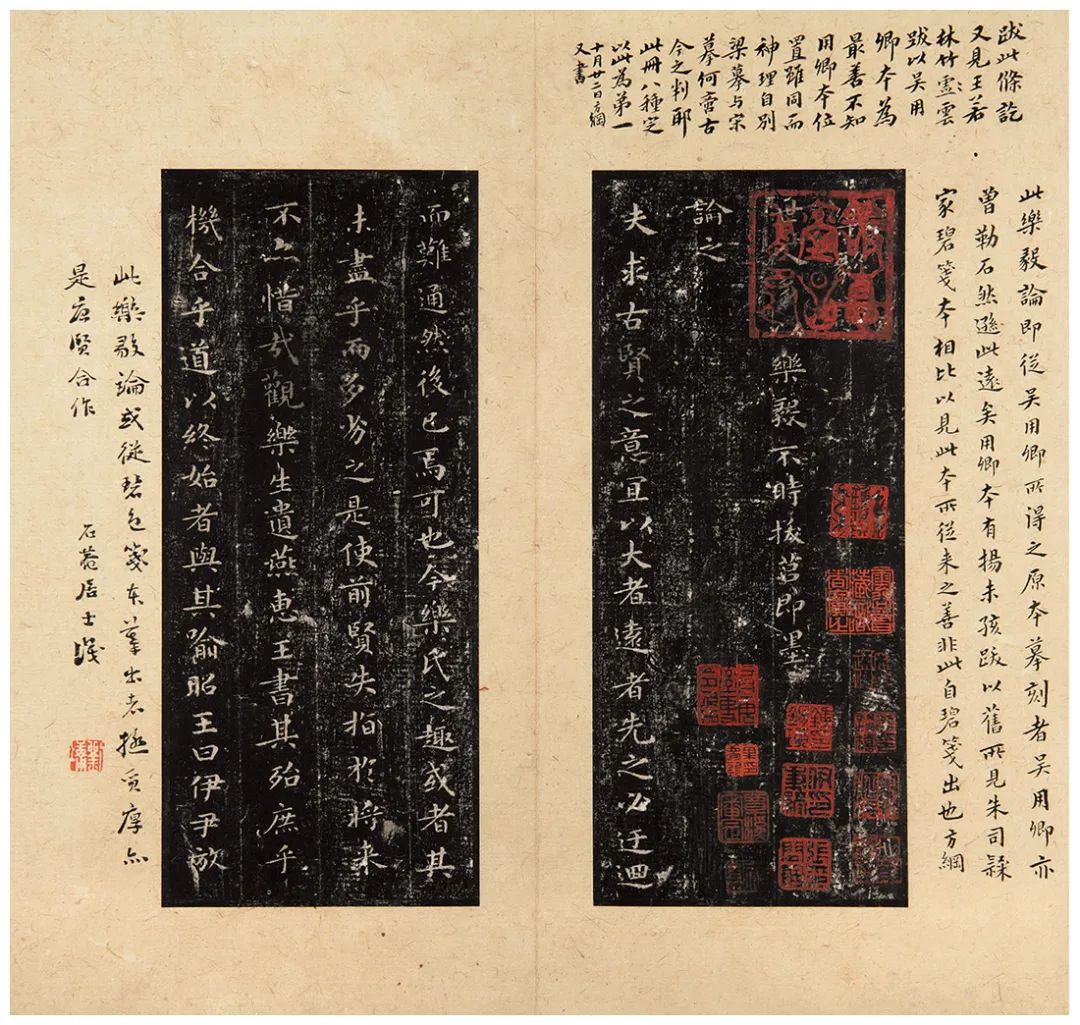 跋此條訖
又見王若
林竹雲
跋以吳用
卿本為
最善不知
用卿本位
置雖同而
神理自別
梁摹與宋
摹何啻古
今之判耶
此冊八種定
以此為第一
十月廿二日方綱
又書
此樂毅論即從吳用卿所得之原本摹刻者吳用卿亦
曾勒石然遜此遠矣用卿本有揚未孩跋以舊所見朱司
家碧箋本相比以見此本所從来之善非此自碧箋出也方綱
樂毅論
世人多以樂毅不時拔莒即墨
論之
夫求古賢之意宜以大者遠者先之必迂迴
而難通然後已焉可也今樂氏之趣或者其
未盡乎而多劣之是使前賢失指於將来
不亦惜哉觀樂生遺燕惠王書其殆庶乎
機合乎道以終始者與其喻昭王曰伊尹放
此樂毅論或從碧色箋本摹出者極質厚亦
是唐賢合作
石菴居士識